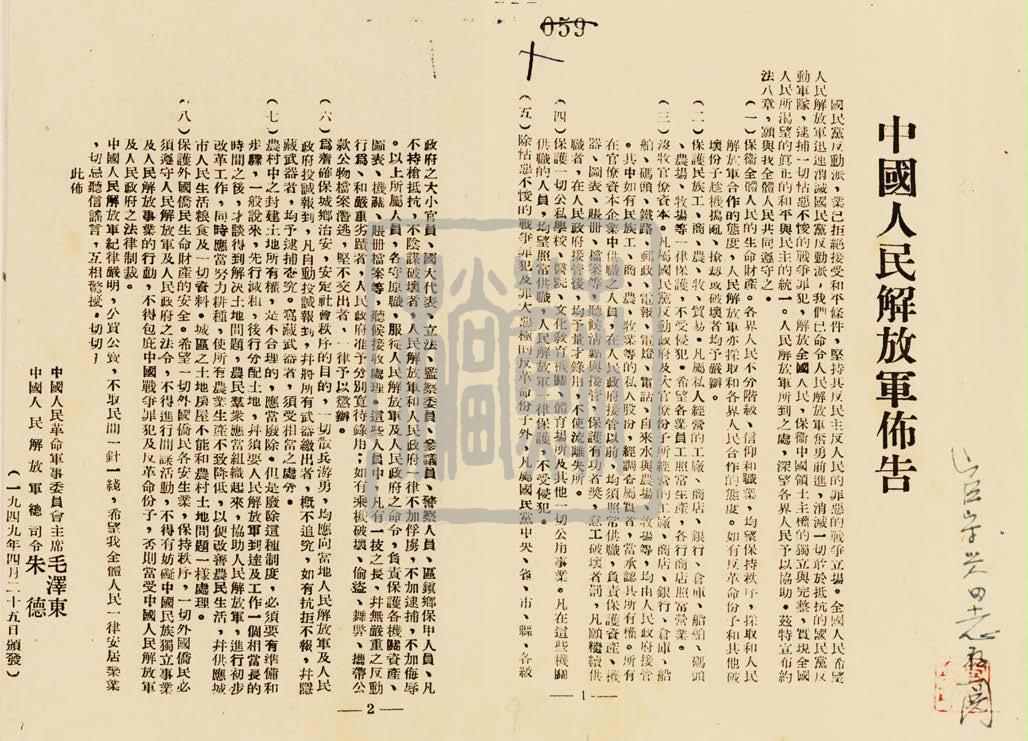 059
十
中國人民解放軍佈告
國民黨反動派,業已拒絕接受和平條件,堅持其反民主反人民的罪惡的戰爭立場。全國人民希望
人民解放軍迅速消滅國民黨反動派,我們已命令人民解放軍奮勇前進,消滅一切敢於抵抗的國民黨反
動軍隊,逮捕一切怙惡不悛的戰爭罪犯,解放全國人民,保衞中國領土主權的獨立與完整,實現全國
人民所渴望的眞正的和平與民主的統一。人民解放軍所到之處,深望各界人民予以協助。茲特宣布約
法八章,願與我全體人民共同遵守之。
(一)保衞全體人民的生命財產。各界人民不分階級、信仰和職業,均望保持秩序,採取和人民
解放軍合作的態度,人民解放軍亦採取和各界人民合作的態度。如有反革命份子和其他破
壞份子趁機搗亂、搶刼或破壞者均予嚴辦。
(二)保護民族工、商、農、牧、貿易。凡屬私人經營的工廠、商店、銀行、倉庫、船舶、碼頭
、農場、牧場等一律保護,不受侵犯。希望各業員工照常生產,各行商店照常營業。
(三)沒收官僚資本。凡屬國民黨反動政府及大官僚份子所經營的工廠、商店、銀行、倉庫、船
舶、碼頭、鐵路、郵政、電報、電燈、電話、自來水與農場、牧場等,均由人民政府接管
。其中如有民族工、商、農、牧業等的私人股份,經調查屬實者,當承認其所有權。所有
在官僚資本企業中供職人員,在人民政府接管以前,均須照常供職,負責保護資產、機
器、圖表、賬册、檔案等,聽候清點與接管,保護有功者獎,怠工破壞者罰,凡願繼續供
職者,在人民政府接管後,均予量才錄用,不使流離失所。
(四)保護一切公私學校、醫院、文化敎育機關、體育場所及其他一切公用事業。凡在這些機關
供職的人員,均望照常供職,人民解放軍一律保護,不受侵犯。
(五)除怙惡不悛的戰爭罪犯及罪大惡極的反革命份子外,凡屬國民黨中央、省、市、縣、各級
—1—
政府之大小官員、國大代表、立法、監察委員、參議員、警察人員、區鎭鄉保甲人員、凡
不持槍抵抗,不陰謀破壞者,人民解放軍和人民政府一律不加俘虜,不加逮捕,不加侮辱
。以上所屬人員,各守原職,服從人民解放軍及人民政府之命令,負責保護各機關資產、
圖表、機器、賬册檔案等,聽候接收處理。這些人員中,凡有一技之長,并無嚴重之反動
行爲,和嚴重劣蹟者,人民政府准予分別寬待錄用;如有乘機破壞、偷盜、舞弊、攜帶公
款公物檔案潛逃,堅不交出者,一律予以懲辦。
(六)爲着確保城鄉治安,安定社會秩序的目的,一切散兵游勇,均應向當地人民解放軍及人民
政府投誠報到,凡自動投誠報到,并將所有武器繳出者,概不追究,如有抗拒不報,并隱
藏武器者,均予逮捕查究。窩藏武器者,須受相當之處分。
(七)農村中之封建土地所有權,是不合理的,應當廢除。但是廢除這種制度,必須要有準備和
步驟,一般說來,先行減租,後行分配土地,并須要人民解放軍到達及工作一個相當長的
時間之後,才談得到解決土地問題,農民羣衆應當組織起來,協助人民解放軍,進行初步
改革工作,同時應當努力耕種,使所有農業生產不致降低,以便改善農民生活,并供應城
市人民生活糧食及一切資料。城區之土地房屋不能和農村土地問題一樣處理。
(八)保護外國僑民生命財產的安全。希望一切外國僑民各安生業,保持秩序,一切外國僑民必
須遵守人民解放軍及人民政府之法令,不得進行間諜活動,不得有妨礙中國民族獨立事業
及人民解放事業的行動,不得包庇中國戰爭罪犯及反革命份子,否則當受中國人民解放軍
及人民政府之法律制裁。
中國人民解放軍紀律嚴明,公買公賣,不取民間一針一綫,希望我全體人民一律安居樂業
,切忌聽信謠言,互相驚擾。切切!
此佈
中國人民革命軍事委員會主席毛澤東
中國人民解放軍總司令朱德
(一九四九年四月二十五日頒發)
—2—